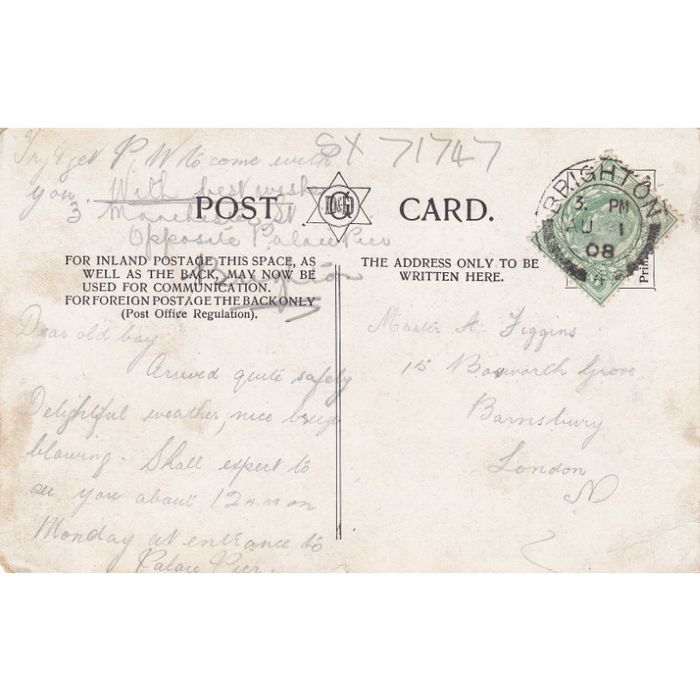 Try & get P.W. to come with
you. With best wishes
3 Manchester St
Opposite Palace Pier
Brighton
SX 71747
POST CARD.
D&G
FOR INLAND POSTAGE THIS SPACE, AS
WELL AS THE BACK, MAY NOW BE
USED FOR COMMUNICATION.
FOR FOREIGN POSTAGE THE BACK ONLY
(Post Office Regulation).
Dear old boy
Arrived quite safely
Delightful weather, nice breeze
blowing. Shall expect to
see you about 12 on
Monday at entrance to
Palace Pier.
THE ADDRESS ONLY TO BE
WRITTEN HERE.
BRIGHTON
3. PM
AU 1
08
Print
Master A. Figgins
15 Boxworth Grove
Barnsbury
London
N